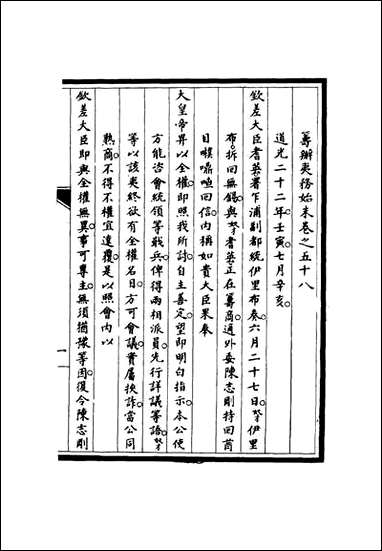 籌辦夷務始末卷之五十八
道光二十二年。壬寅。七月辛亥。
欽差大臣耆英署乍浦副都統伊里布奏。六月二十七日。奴才伊里
布。拆回無錫。與奴才耆英正在籌商。適外委陳志剛持回茵
目噗嘣喳回信。內稱如貴大臣果奉
大皇帝畀以全權。即照我所討。自主善定。望即明白指示。本公使
方能咨會統領等戢兵。俾得兩相派員。先行詳議等語。奴才
等以該夷終欲有全權名目。方可會議。實屬挾詐。當公同
熟商。不得不權宜遠覆。是以照會內以
欽差大臣即與全權無異。事可專主。無須猶豫等因。復令陳志剛
一